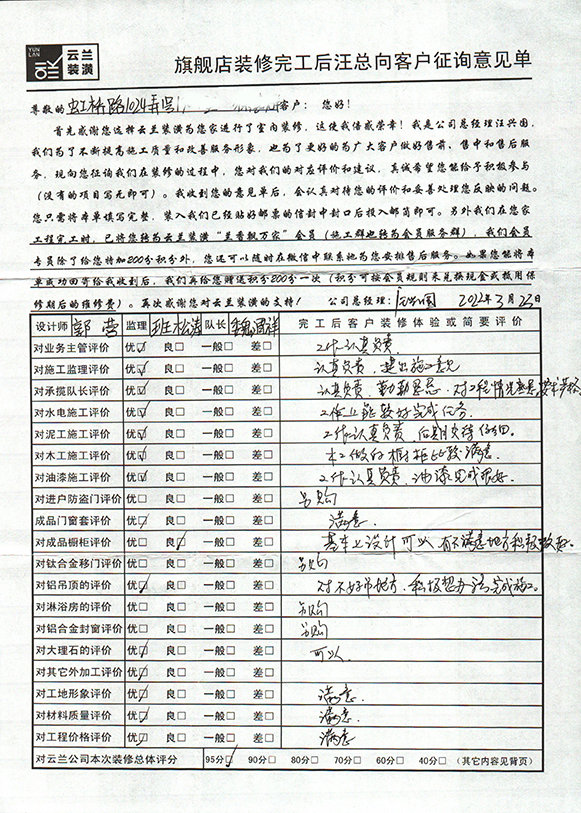 YUN LAN
云兰装潢
旗舰店装修完工后汪总向客户征询意见单
尊敬的虹桥路1024弄 客户： 您好！
首先感谢您选择云兰装潢为您家进行了室内装修，这使我倍感荣幸！我是公司总经理汪兴国，
我们为了不断提高施工质量和改善服务形象，也为了更好的为广大客户做好售前、售中和售后服
务，现向您征询我们在装修的过程中，您对我们的对应评价和建议，真诚希望您能给予积极参与
（没有的项目写无即可）。我收到您的意见单后，会认真对待您的评价和妥善处理您反映的问题。
您只需将本单填写完整，装入我们已经贴好邮票的信封中封口后投入邮筒即可。另外我们在您家
工程完工时，已将您转为云兰装潢“兰香飘万家”会员（施工群也转为会员服务群），我们会员
专员除了给您特加200分积分外，您还可以随时在微信中联系他为您安排售后服务。如果您能将本
单成功回寄给我收到后，我们再给您赠送积分200分一次（积分可按会员规则来兑换现金或抵用保
修期后的维修费）。再次感谢您对云兰装潢的支持！ 公司总经理： 2022年3月22日
设计师 郭营 监理 班松涛 队长 魏周祥 完工后客户装修体验或简要评价
对业务主管评价 优☑ 良□ 一般□ 差□ 工作认真负责
对施工监理评价 优☑ 良□ 一般□ 差□ 认真负责，提出施工意见
对承揽队长评价 优☑ 良□ 一般□ 差□ 认真负责，勤勤恳恳，对工程情况熟悉，
对水电施工评价 优☑ 良□ 一般□ 差□ 工作上能较好完成任务
对泥工施工评价 优☑ 良□ 一般□ 差□ 工作认真负责，后期交待仔细。
对木工施工评价 优☑ 良□ 一般□ 差□ 木工做的橱柜比较满意
对油漆施工评价 优☑ 良□ 一般□ 差□ 工作认真负责，油漆完成很好
对进户防盗门评价 优□ 良□ 一般□ 差□ 另购
成品门窗套评价 优☑ 良□ 一般□ 差□ 满意，
对成品橱柜评价 优□ 良☑ 一般□ 差□ 基本上设计可以，有不满意地方积极改正。
对钛合金移门评价 优□ 良□ 一般□ 差□ 另购
对铝吊顶的评价 优☑ 良□ 一般□ 差□ 对不好吊地方，积极想办法完成施工。
对淋浴房的评价 优□ 良□ 一般□ 差□ 另购
对铝合金封窗评价 优□ 良□ 一般□ 差□ 另购
对大理石的评价 优☑ 良□ 一般□ 差□ 可以
对其它外加工评价 优☑ 良□ 一般□ 差□
对工地形象评价 优☑ 良□ 一般□ 差□ 满意
对材料质量评价 优☑ 良□ 一般□ 差□ 满意
对工程价格评价 优☑ 良□ 一般□ 差□ 满意
对云兰公司本次装修总体评分 95分☑ 90分□ 80分□ 70分□ 60分□ 40分□ （其它内容见背页）